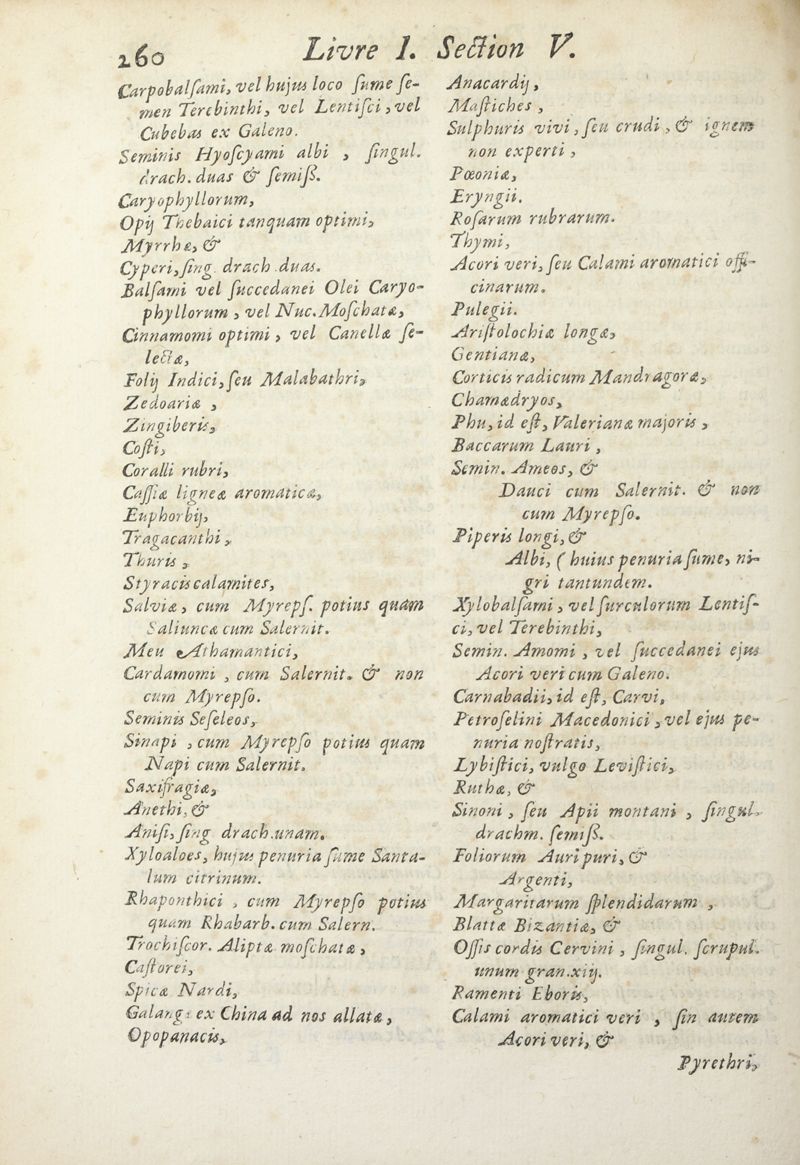 260 Livre I. Section V.
Carpobalsami, vel hujus loco sume se-
men Terebinthi, vel Lentisci, vel
Cubebas ex Galeno.
Seminis Hyoscyami albi , singul.
drach. duas & semiss.
Caryophyllorum,
Opij Thebaici tanquam optimi,
Myrrhæ, &
Cyperi, sing. drach. duas.
Balsami vel succedanei Olei Caryo-
phyllorum , vel Nuc. Moschatæ,
Cinnamomi optimi , vel Canellæ se-
lectæ,
Folij Indici, seu Malabathri,
Zedoariæ ,
Zingiberis,
Costi,
Coralli rubri,
Cassiæ ligneæ aromaticæ,
Euphorbij,
Tragacanthi ,
Thuris ,
Styracis calamites,
Salviæ , cum Myreps. potius quàm
Saliuncæ cum Salernit.
Meu Athamantici,
Cardamomi , cum Salernit. & non
cum Myrepso.
Seminis Seseleos,
Sinapi , cum Myrepso potius quam
Napi cum Salernit.
Saxifragiæ,
Anethi, &
Anisi, sing drach. unam.
Xyloaloes, hujus penuria sume Santa-
lum citrinum.
Rhaponthici , cum Myrepso potius
quam Rhabarb. cum Salern.
Trochiscor. Aliptæ moschatæ ,
Castorei,
Spicæ Nardi,
Galangæ ex China ad nos allatæ ,
Opopanacis,
Anacardij ,
Mastiches ,
Sulphuris vivi , seu crudi , & ignem
non experti ,
Pœoniæ,
Eryngii.
Rosarum rubrarum.
Thymi,
Acori veri, seu Calami aromatici offi-
cinarum.
Pulegii.
Aristolochiæ longæ,
Gentianæ,
Corticis radicum Mandragoræ,
Chamædryos,
Phu, id est, Valerianæ majoris ,
Baccarum Lauri ,
Semin. Ameos, &
Dauci cum Salernit. & non
cum Myrepso.
Piperis longi, &
Albi, ( huius penuria sume, ni-
gri tantundem.
Xylobalsami , vel surculorum Lentis-
ci, vel Terebinthi,
Semin. Amomi , vel succedanei ejus
Acori veri cum Galeno.
Carnabadii, id est, Carvi,
Petroselini Macedonici , vel ejus pe-
nuria nostratis,
Lybistici, vulgo Levistici,
Ruthæ, &
Sinoni , seu Apii montani , singul.
drachm. semiss.
Foliorum Auri puri, &
Argenti,
Margaritarum splendidarum ,
Blattæ Bizantiæ, &
Ossis cordis Cervini , singul. scrupul.
unum gran. xiij.
Ramenti Eboris,
Calami aromatici veri , sin autem
Acori veri, &
Pyrethri,